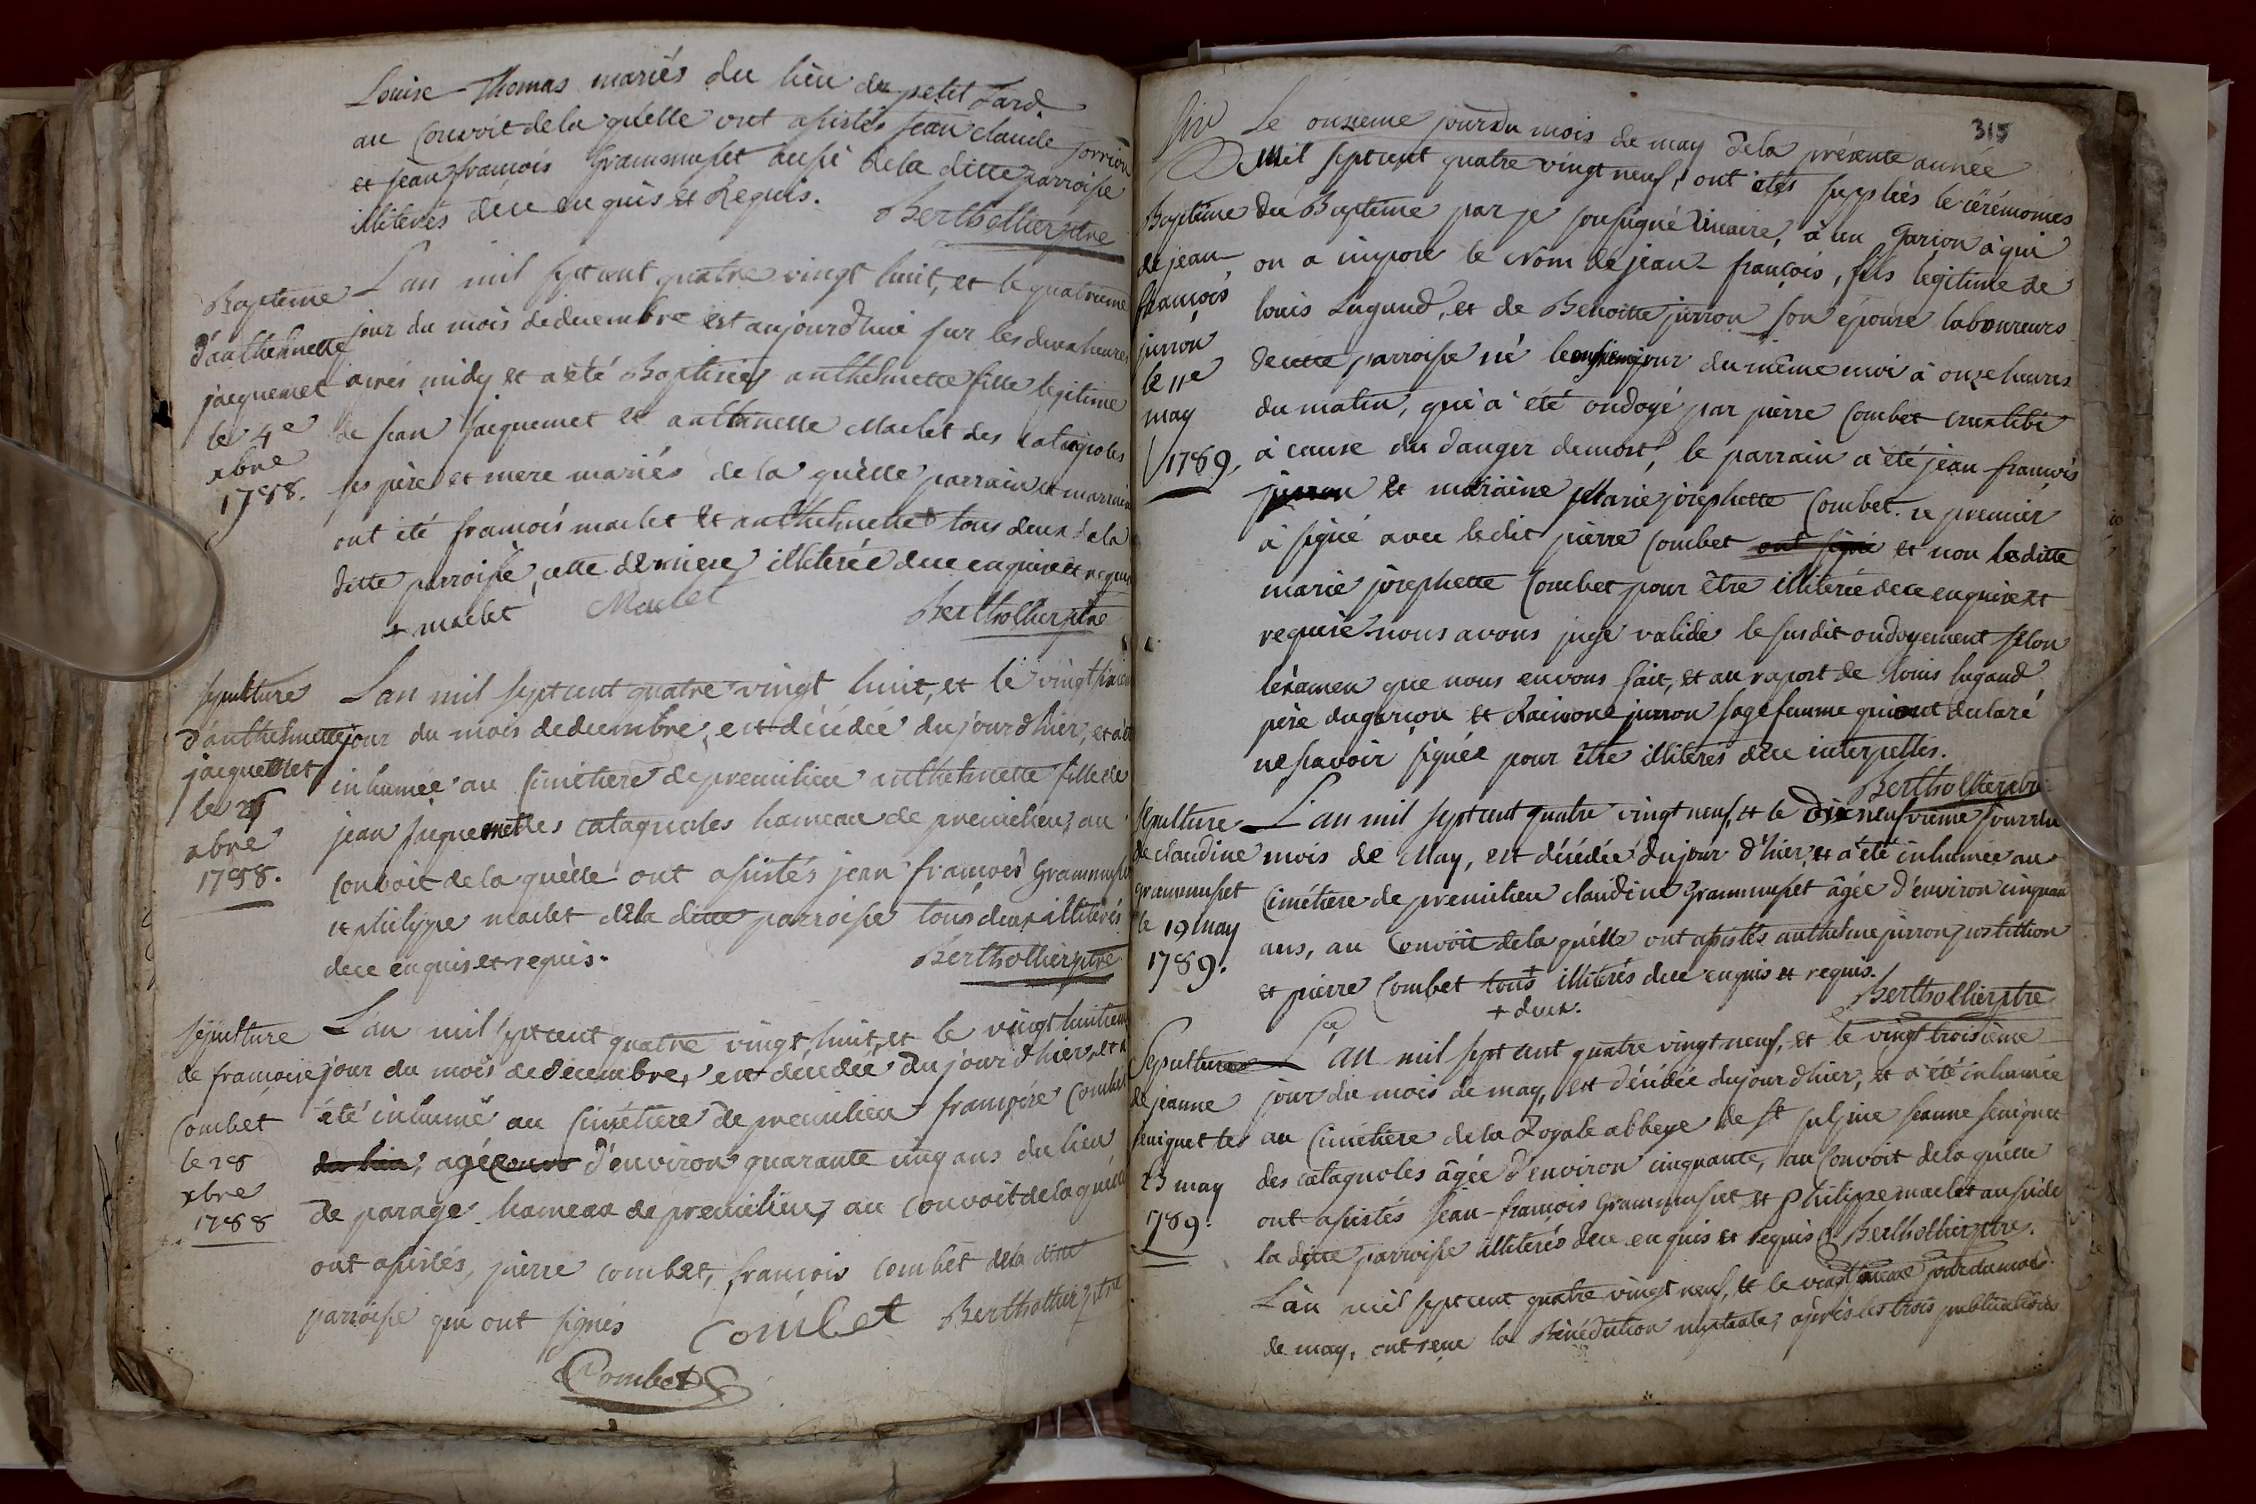 Louise Thomas mariés du lieu du petit
au Convoit de la quelle ont assistés jean claude
et jean françois Grammusset aussi de la ditte parroisse
illiterés dece enquis et Requis. Berthollier ptre
Baptême
d'anthelmette
jacquemet
le 4e
xbre
1788.
L'an mil sept cent quatre vingt huit, et le quatrieme
jour du mois de decembre est aujourdhui sur les deux heures
après midy et a été Baptisée anthelmette fille legitime
de jean jacquemet et anthelmette Maclet des catagnoles
ses père et mere mariés de la quelle parrain et marraine
ont été françois maclet et anthelmette + tous deux de la
ditte parroisse, cette derniere illiterée dece enquise et requise
+ maclet Maclet Berthollier ptre
sepulture
d'anthelmette
jacquemet
le 26
xbre
1788.
L'an mil sept cent quatre vingt huit, et le vingt sixieme
jour du mois de decembre, est décédée du jour d'hier, et a été
inhumée au Cimetiere de premilieu anthelmette fille de
jean jaquemet des catagnoles hameau de premilieu, au
convoit de la quelle ont assistés jean françois Grammusset
et philippe maclet de la ditte parroisse tous deux illiterés
dece enquis et requis. Berthollier ptre
sepulture
de françoise
Combet
le 28
xbre
1788
L'an mil sept cent quatre vingt huit, et le vingt huitieme
jour du mois de decembre, est décédée du jour d'hier, et a
été inhumé au Cimétiere de premilieu françoise Combet
du lieu, agée d'environ quarante cinq ans du lieu
de parage hameau de premilieu, au convoit de la quelle
ont assistés, pierre combet, françois Combet de la ditte
parroisse qui ont signés Combet Berthollier ptre
Combet
315
Le onzieme jour du mois de may de la présente année
Mil sept cent quatre vingt neuf, ont étés suppliés le cérémonies
Baptême
de jean
françois
jurron
le 11e
may
1789.
du Baptême par je soussigné Vicaire, à un Garçon à qui
on a imposé le Nom de jean françois, fils legitime de
louis Lugand, et de Benoitte jurron son épouse laboureurs
de cette parroisse né le onsieme jour du même moi à onze heures
du matin, qui a été ondoyé par pierre Combet
à cause du danger de mort, le parrain a été jean françois
jurron et maraine Marie josephette Combet. ce premier
à signé avec le dit pierre Combet ont signé et non la ditte
marie josephette Combet pour être illiterée dece enquise et
requise nous avons jugé valide le susdit ondoyement selon
l'éxamen que nous en vons fait, et au raport de Louis lugand
père du garçon et jurron sage femme qui ont declaré
ne savoir signée pour être illiterés dece interpellés.
Berthollier ptre
sepulture
de claudine
Grammusset
le 19 may
1789.
L'an mil sept cent quatre vingt neuf, et le dix neufvieme jour du
mois de May, est décédée du jour d'hier, et a été inhumée au
Cimétiere de premilieu claudine Grammusset âgée d'environ cinquante
ans, au Convoit de la quelle ont assistés anthelme jurron
et pierre Combet tous + illiterés dece enquis et requis.
+ deux. Berthollier ptre
Sepulture
de jeanne
le
23 may
1789.
L'an mil sept cent quatre vingt neuf, et le vingt troisieme
jour du mois de may, est décédée du jour d'hier, et a été inhumée
au Cimétiere de la Royale abbeye de St Sulpice jeanne
des catagnoles âgée d'environ cinquante, au Convoit de la quelle
ont assistés jean-françois Grammusset et Philippe maclet aussi de
la ditte parroisse illiterés dece enquis et requis. Berthollier ptre.
L'an mil sept cent quatre vingt neuf, et le jour du mois
de may, ont reçu la Bénédiction nuptiale, après les trois publications